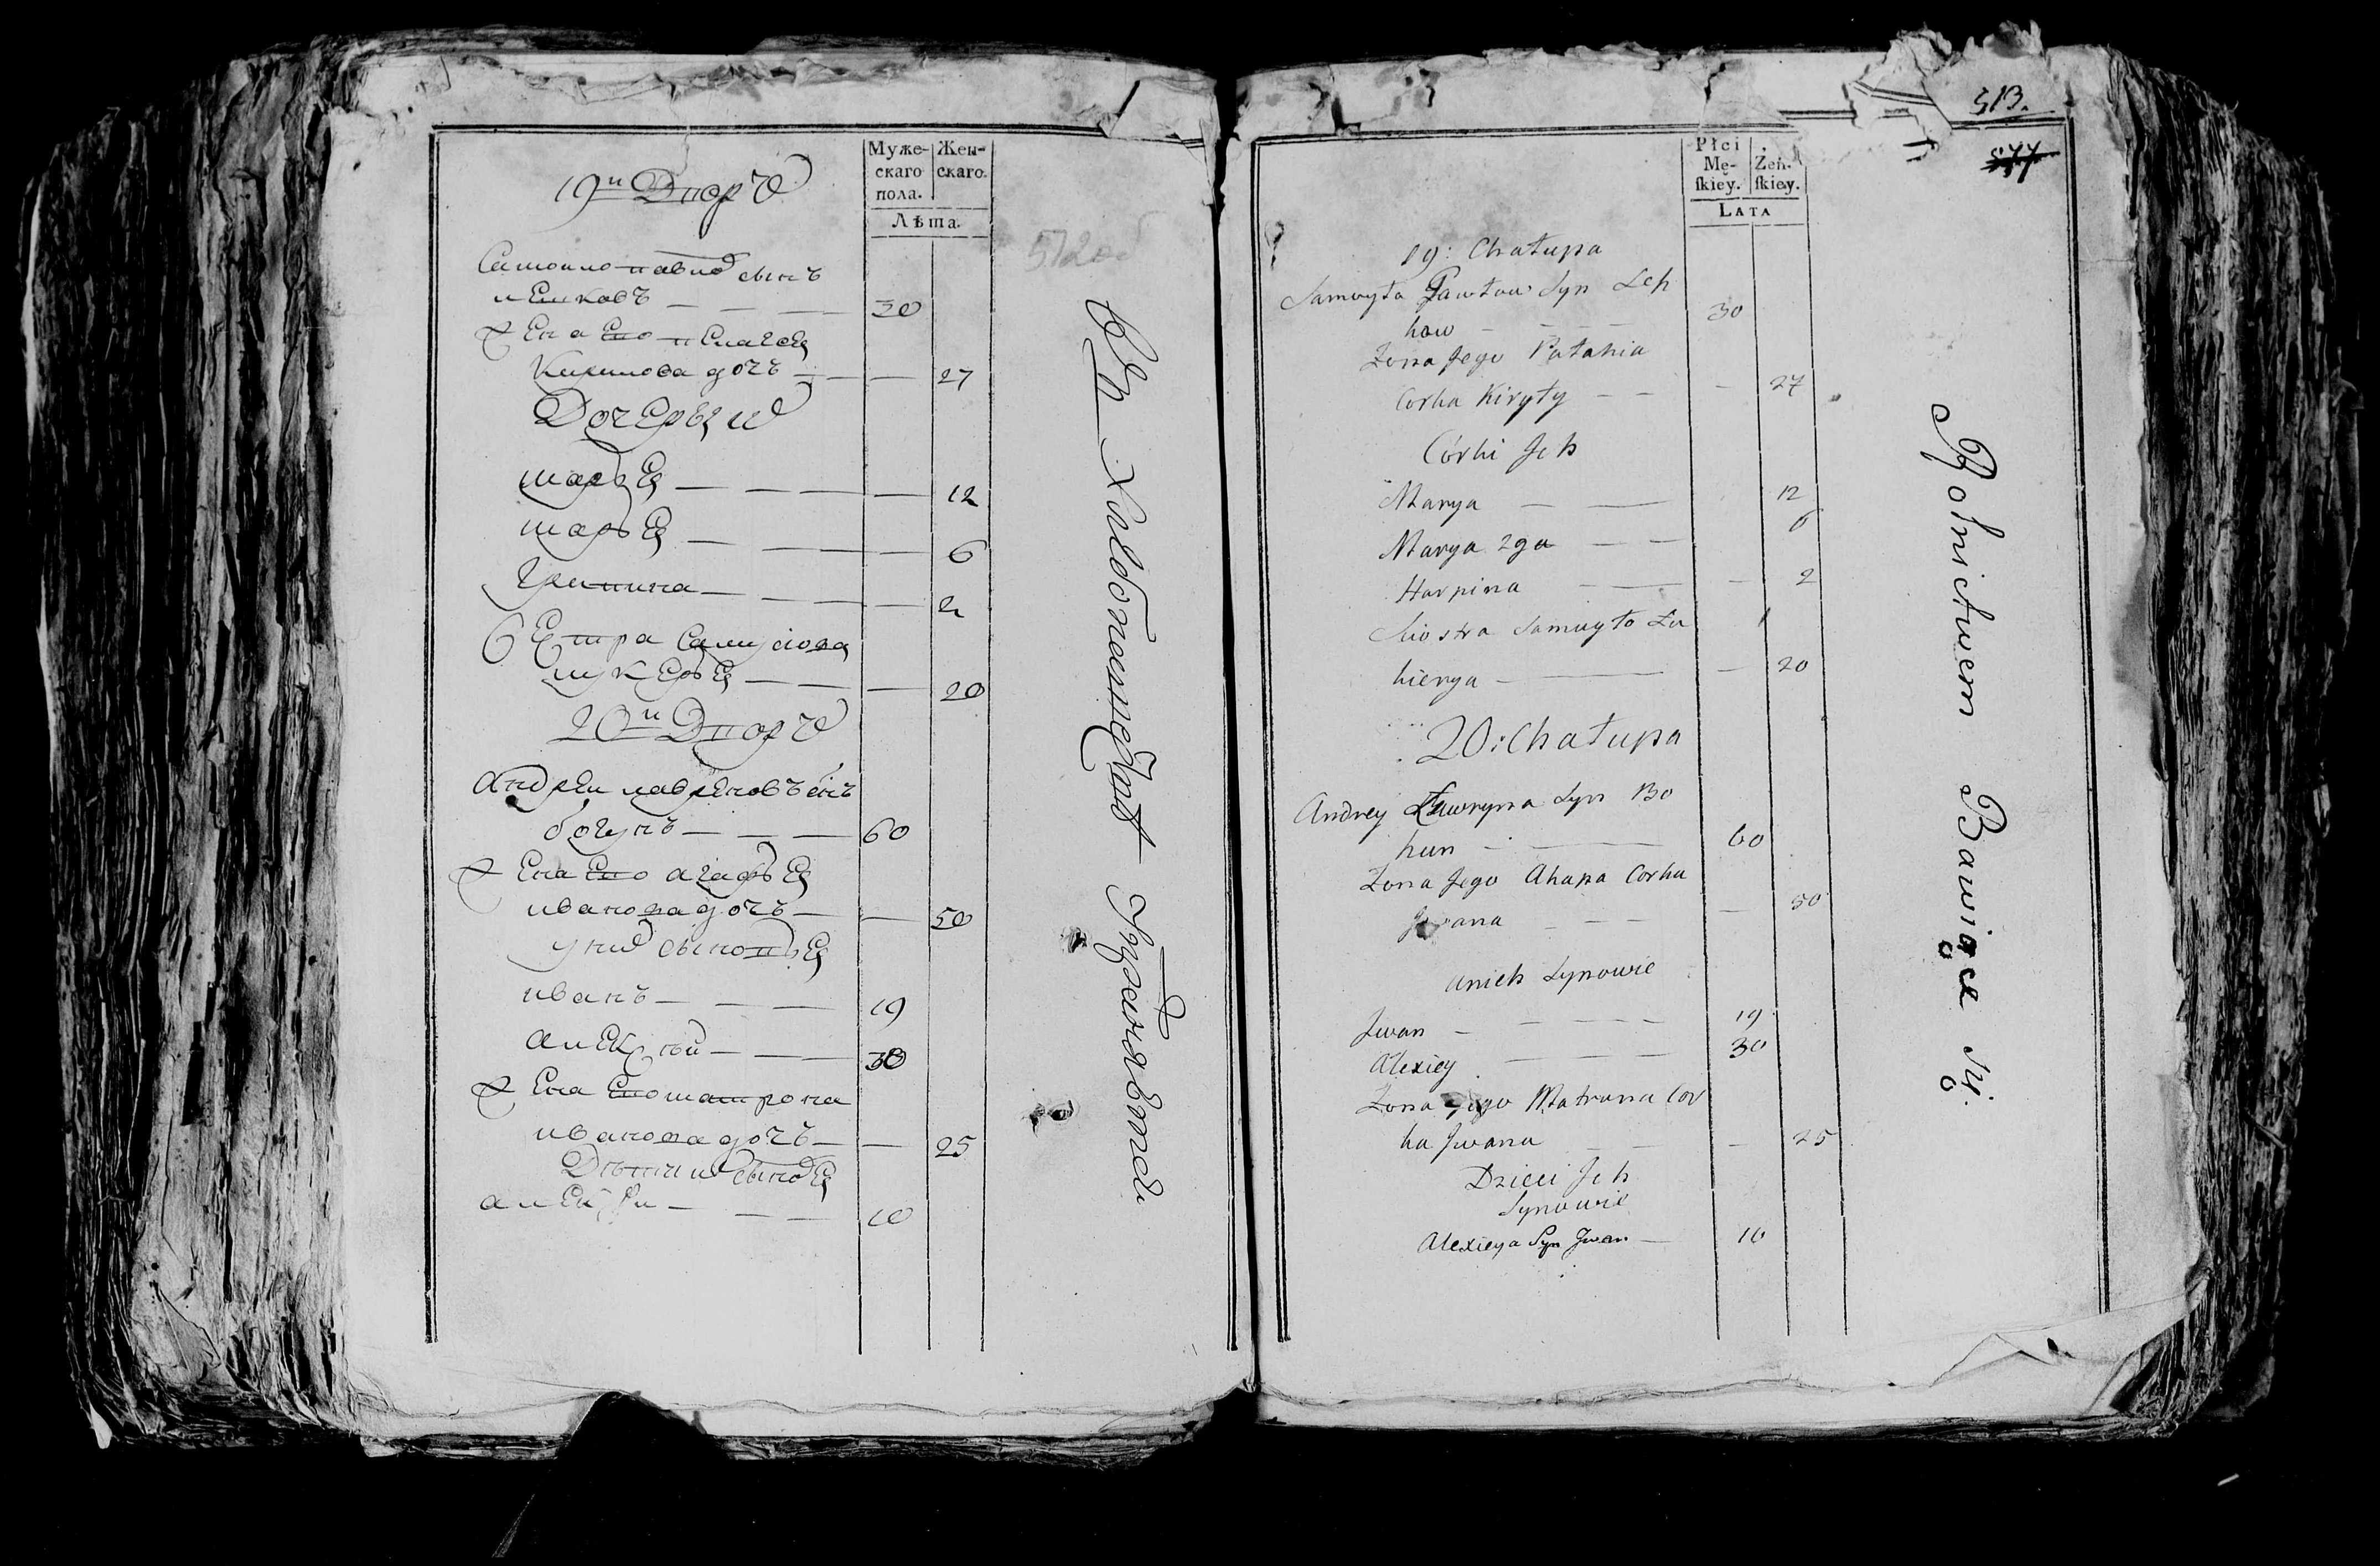 Муже-
скаго
пола.
Жен-
скаго.
Лѣта.
19й Дворъ
Самойло павловъ сынъ
лешковъ — — — 30
Жена Его пелагея
Кирилова дочь — — 27
Дочеры их
марья — — — — 12
марья — — — — 6
Грипина — — — — 2
Сестра Самуслова
лукерья — — — 20
20й Дворъ
Андреи лавреновъ снъ
богунъ — — — 60
Жена Его агафья
иванова дочь — — 50
у них сыновья
иванъ — — — 19
алексѣй — — — 30
Жена Его матрона
иванова дочь — — 25
Дѣти их сыновья
алексѣи — — — 10
512об
въ хлебопашествѣ упражняются
513.
577
Płci
Mę-
ſkiey.
Żeń-
ſkiey.
Lata
19: Chałupa
Samuyło Pawłow Syn Leh
how — — — 30
Żona Jego Pałahia
Corka Kiryły — — — 27
Córki Jch
Marya — — 12
Marya 2ga — — 6
Harpina — — 2
Siostra Samuyło Łu
kierya — — 20
20: Chałupa
Andrey Ławryna Syn Bo
hun — — 60
Żona Jego Ahapa Corka
Jwana — — — 50
Unich Synowie
Jwan — — — — 19
Alexiey — — — 30
Żona Jego Matrona Cor
ka Jwana — — — 25
Dzieci Jch
Synowie
Alexieya Syn Jwan — 10
Rolnictwem Bawiące się.